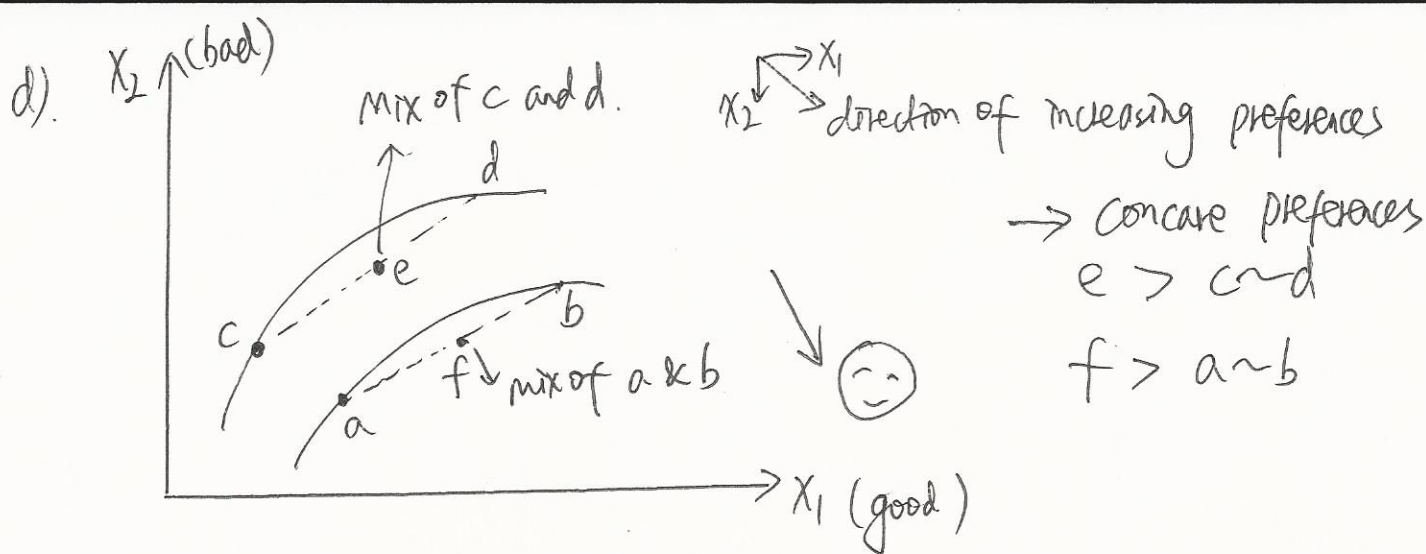 d).
X₂ (bad)
mix of c and d.
d
e
c
b
f
mix of a & b
a
X₁ (good)
X₁
X₂
direction of increasing preferences
→ Concave preferences
e > c~d
f > a~b